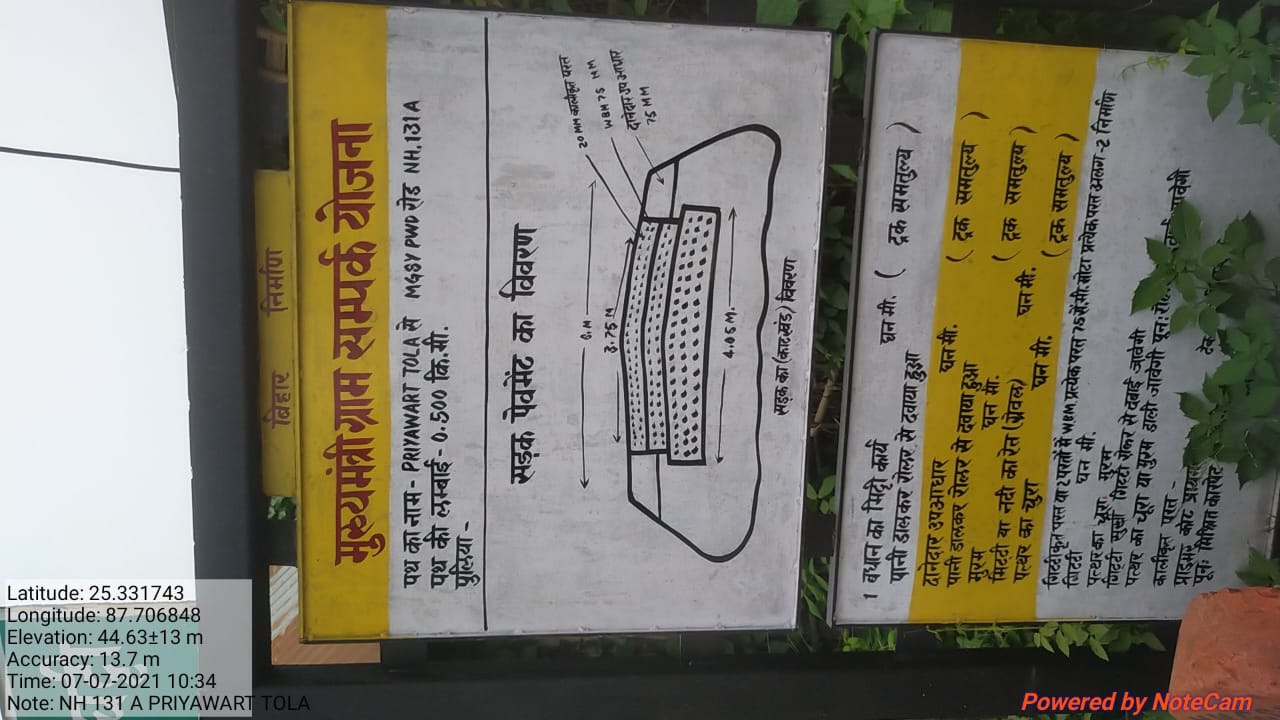 बिहार निर्माण
मुख्यमंत्री ग्राम सम्पर्क योजना
पथ का नाम - PRIYAWART TOLA से MGSY PWD रोड NH.131A
पथ की लम्बाई - 0.500 कि.मी.
पुलिया -
सड़क पेवमेंट का विवरण
20 MM कालीकृत परत
WBM 75 MM
दानेदार उपआधार
75 MM
6.M
3.75 M
4.05 M.
सड़क का (काट खंड) विवरण
1 बधान का मिट्टी कार्य घन मी. ( ट्रक समतुल्य )
पानी डालकर रोलर से दवाया हुआ
दानेदार उपआधार घन मी. ( ट्रक समतुल्य )
पानी डालकर रोलर से दवाया हुआ
मुरम घन मी. ( ट्रक समतुल्य )
मिटटी या नदी का रेत (ग्रेवल) घन मी. ( ट्रक समतुल्य )
पत्थर का चुरा घन मी.
गिटटीकृत परत या 2 परतों में WBM प्रत्येक परत 75 से.मी. मोटा प्रत्येक परत अलग-2 निर्माण
गिटटी घन मी.
पत्थर का धूरा, मुरम
गिटटी सुखी गिटटी रोलर से दबाई जावेगी
पत्थर का धूरा या मुरम डाली जावेगी पून: रोलर
कालीकृत परत -
प्राईमर कोट
पून: मिश्रित कारपेट
Latitude: 25.331743
Longitude: 87.706848
Elevation: 44.63±13 m
Accuracy: 13.7 m
Time: 07-07-2021 10:34
Note: NH 131 A PRIYAWART TOLA
Powered by NoteCam